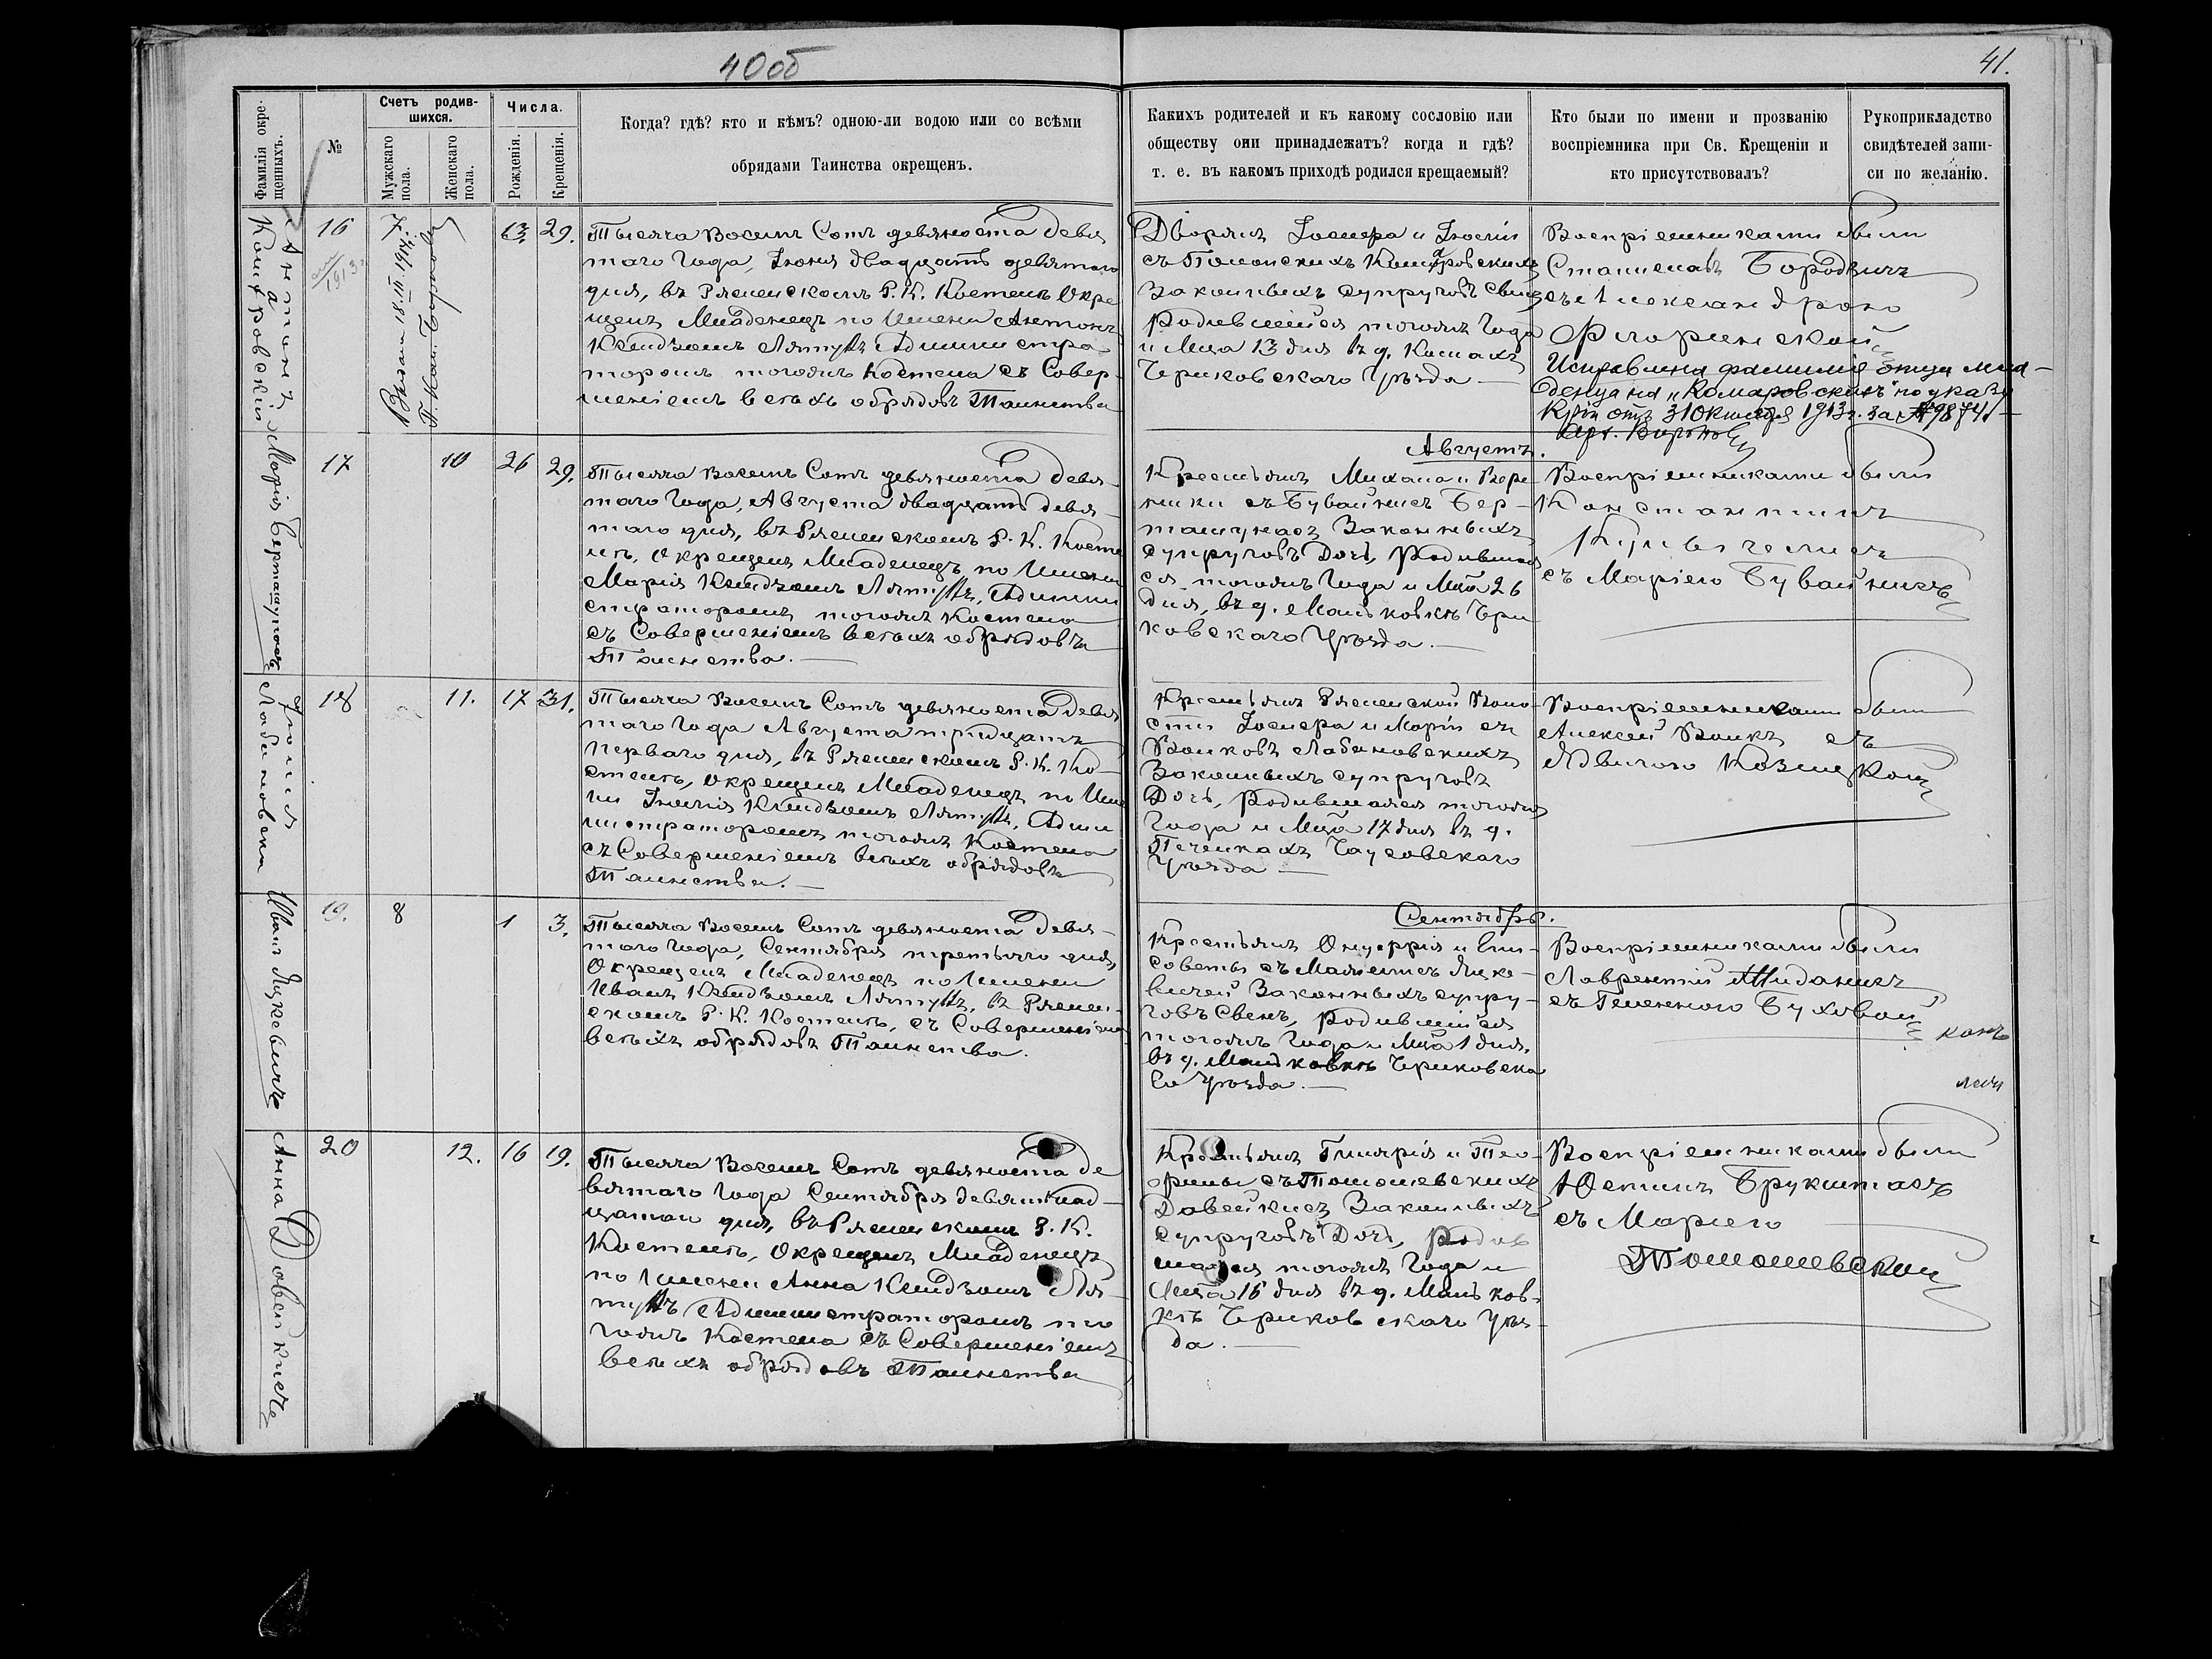 40об
41.
Фамилія окрещенныхъ.
№
Счетъ родившихся.
Мужскаго пола.
Женскаго пола.
Числа.
Рожденія.
Крещенія.
Когда? гдѣ? кто и кѣмъ? одною-ли водою или со всѣми
обрядами Таинства окрещенъ.
Какихъ родителей и къ какому сословію или
обществу они принадлежатъ? когда и гдѣ?
т. е. въ какомъ приходѣ родился крещаемый?
Кто были по имени и прозванію
воспріемника при Св. Крещеніи и
кто присутствовалъ?
Рукоприкладство
свидѣтелей запи-
си по желанію.
Антонъ
16
1913г.
7
13.
29.
Тысяча Восемь Сотъ девяноста девя
таго Года, Іюня двадцать девятаго
дня, въ Рясненскомъ Р. К. Костелѣ Окре
щенъ Младенецъ по Имени Антонъ
Ксендзомъ Администра-
торомъ тогожъ Костела съ Совер-
шеніемъ всѣхъ обрядовъ Таинства
Дворянъ Іосифа и Іюліи
Законныхъ Супруговъ Сынъ
Родившійся тогожъ Года
и Мца 13 дня въ д.
Чериковскаго Уѣзда
Воспріемниками были
Станиславъ Бородзичъ
съ Александрою
Флоринской
Исправлена фамилія отца мла-
денца на „Комаровскихъ" по указу
отъ 31 Октября 1913г. за № 9874.
Августъ.
Марія Берташунасъ
17
10
26
29.
Тысяча Восемь Сотъ девяноста девя-
таго Года, Августа двадцать девя-
таго дня, въ Рясненскомъ Р. К. Косте
лѣ, Окрещенъ Младенецъ по Имени
Марія Ксендзомъ Админи
страторомъ тогожъ Костела
съ Совершеніемъ всѣхъ обрядовъ
Таинства.
Крестьянъ Михаила и Веро
ники съ Бувайнисъ Бер-
ташунасъ Законныхъ
Супруговъ Дочь, Родившая
ся тогожъ Года и Мца 26
дня, въ д. Маньковкѣ Чери
ковскаго Уѣзда.
Воспріемниками были
Константинъ
съ Маріею Бувайнисъ
18
11.
17
31.
Тысяча Восемь Сотъ девяноста девя
таго Года Августа тридцать
перваго дня, въ Рясненскомъ Р. К. Ко-
стелѣ, Окрещенъ Младенецъ по Име
ни Іюлія Ксендзомъ Адми
нистраторомъ тогожъ Костела
съ Совершеніемъ всѣхъ обрядовъ
Таинства.
Крестьянъ Рясненской Воло
сти Іосифа и Маріи съ
Волковъ Лабановскихъ
Законныхъ Супруговъ
Дочь, Родившаяся тогожъ
Года и Мца 17 дня въ д.
Печенкахъ Чаусовскаго
Уѣзда
Воспріемниками были
Алексей Волкъ съ
Ядвигою Козлицкой
Сентябрь.
Иванъ Яцкевичъ
19.
8
1
3.
Тысяча Восемь Сотъ девяноста девя-
таго Года, Сентября третьяго дня,
Окрещенъ Младенецъ по Имени
Иванъ Ксендзомъ въ Ряснен-
скомъ Р. К. Костелѣ, съ Совершеніемъ
всѣхъ обрядовъ Таинства.
Крестьянъ Онуфрія и Ели-
саветы съ Яцке-
вичей Законныхъ супру-
говъ Сынъ, Родившійся
тогожъ Года и Мца 1 дня,
въ д. Маньковкѣ Чериковска
го Уѣзда.
Воспріемниками были
Лаврентій
съ
Анна Довейкисъ
20
12.
16
19.
Тысяча Восемь Сотъ девяноста де
вятаго Года Сентября девятнад-
цатаго дня, въ Рясненскомъ Р. К.
Костелѣ, Окрещенъ Младенецъ
по Имени Анна Ксендзомъ
Администраторомъ то
гожъ Костела съ Совершеніемъ
всѣхъ обрядовъ Таинства
Крестьянъ Гиляріа и Тео-
филы съ Томашевскихъ
Довейкисъ Законныхъ
Супруговъ Дочь, Родив
шаяся тогожъ Года и
Мца 16 дня въ д. Маньков-
кѣ Чериковскаго Уѣз-
да.
Воспріемниками были
Юстинъ
съ Маріею
Томашевской